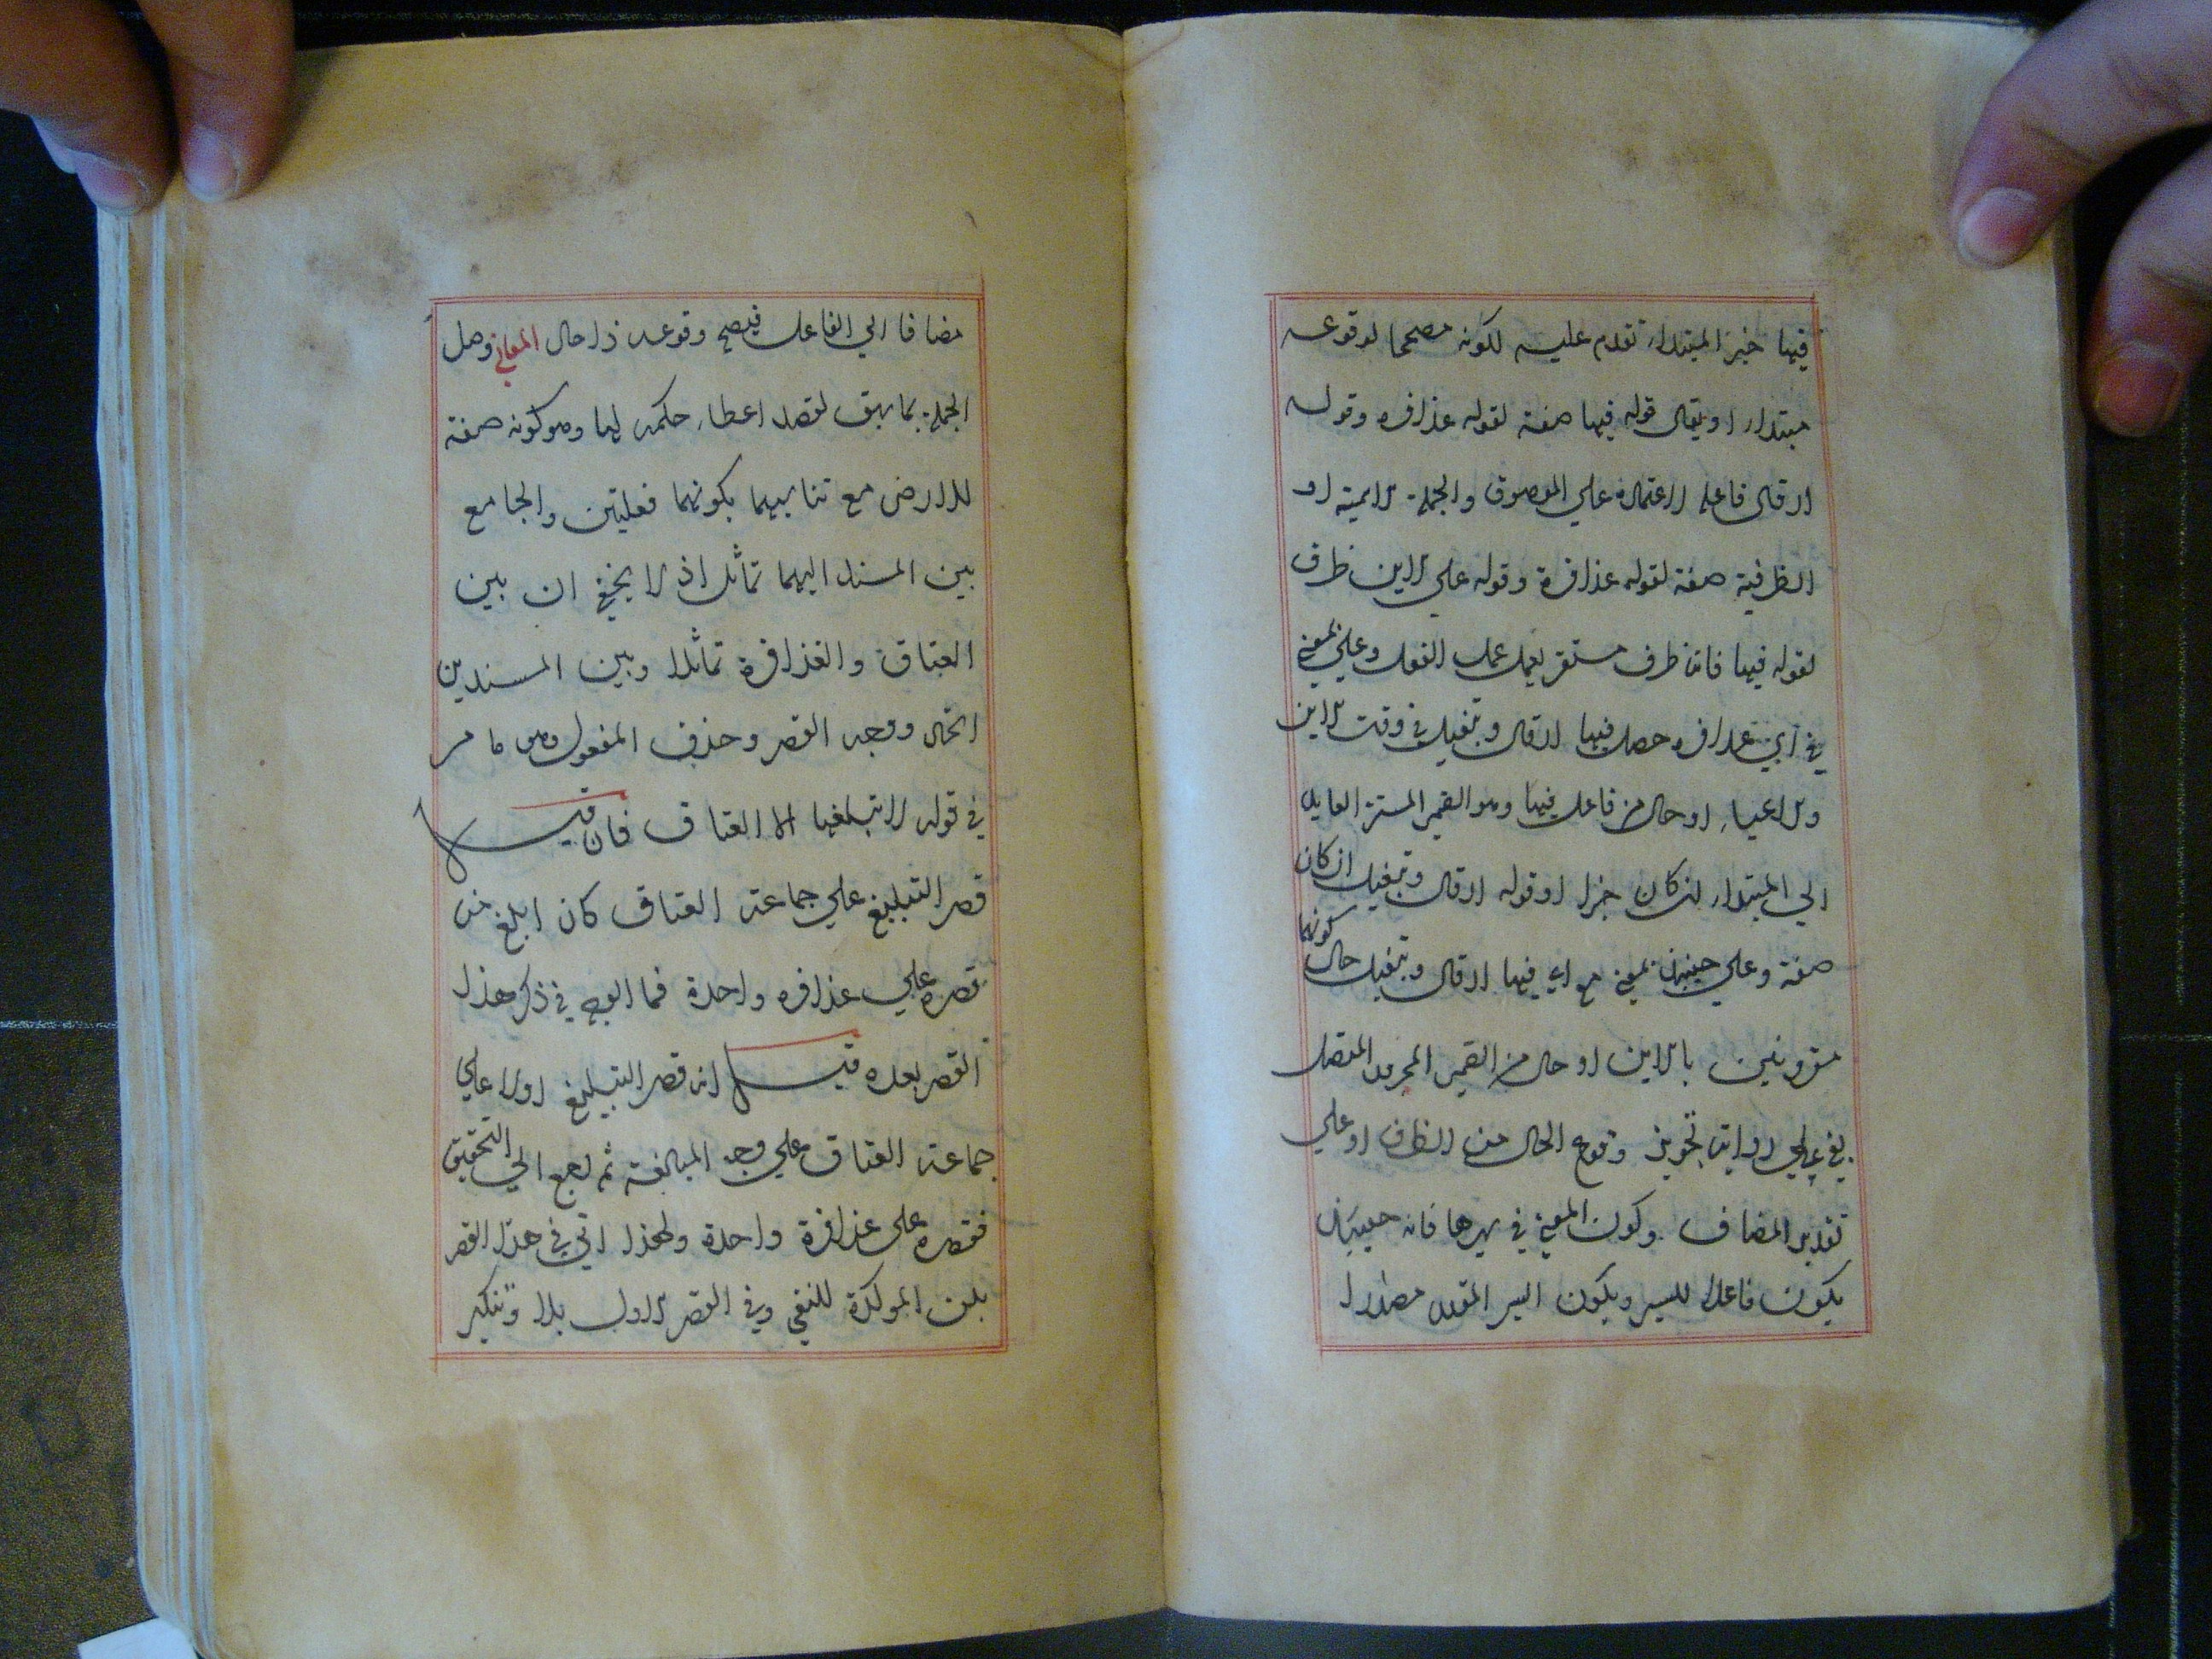 فيها خبر المبتداء تقدم عليه لكونه مصححا لوقوعه
مبتداء او يقال قوله فيها صفة لقوله عذافره وقوله
ارقال فاعله لاعتماده على الموصوف والجملة الاسمية او
الظرفية صفة لقوله عذافرة وقوله علي الاين ظرف
لقوله فيها فانه ظرف مستقر يعمل عمل الفعل وعلي بمعني
في اي عذافره حصل فيها ارقال وتبغيل في وقت الاين
والاعياء او حال من فاعل فيها وهو الضمير المستتر العايد
الي المبتداء ان كان خبرا او قوله ارقال وتبغيل ان كان
صفة وعلي حينئذ بمعني مع اي فيها ارقال وتبغيل حال كونهما
مقرونين بالاين او حال من الضمير المجرور المتصل
بفي علي رواية تجويز وقوع الحال من الظرف او علي
تقدير المضاف وكون المعني في سيرها فانه حينئذ
يكون فاعلا للسير ويكون السير المقدر مصدرا
مضافا الي الفاعل فيصح وقوعه ذا حال المعاني وصل
الجملة بما سبق لقصد اعطاء حكمه لها وهو كونه صفة
للارض مع تناسبهما بكونهما فعليتين والجامع
بين المسند اليهما تماثل اذ لا يخفي ان بين
العتاق والغذافرة تماثلا وبين المسندين
اتحاد ووجه القصر وحذف المفعول وهو ما مر
في قوله لا تبلغها الا العتاق فان قيل
قصر التبليغ علي جماعة العتاق كان ابلغ من
قصره علي عذافره واحدة فما الوجه في ذكر هذا
القصر بعده قيل انه قصر التبليغ اولا علي
جماعة العتاق علي وجه المبالغة ثم رجع الي التحقيق
فقصره علي عذافرة واحدة ولهذا اتي في هذا القصر
بلن المؤكدة للنفي وفي القصر الاول بلا وتنكير